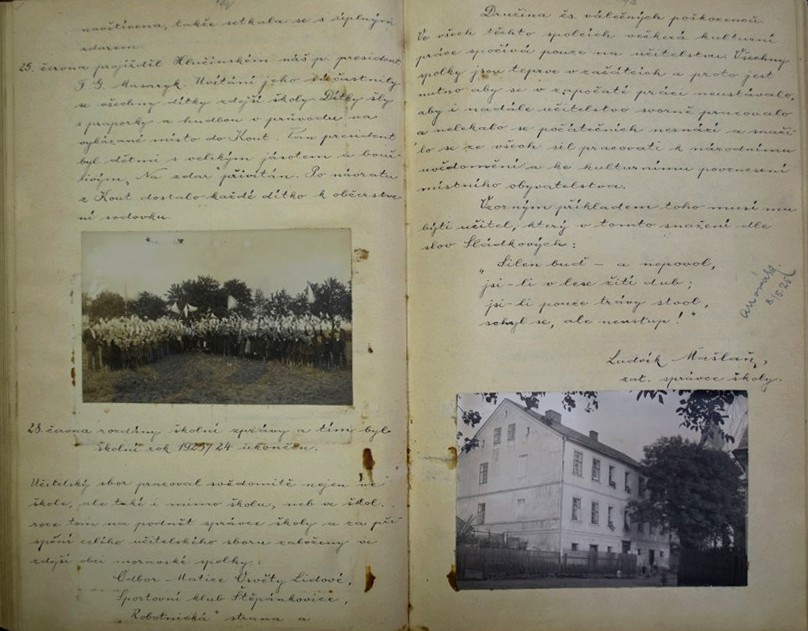 navštívena, takže setkala se s úplným
zdarem.
25. června projížděl Hlučínskem náš p. president
T. G. Masaryk. Uvítání jeho súčastnily
se všechny dítky zdejší školy. Dítky šly
s praporky a hudbou v průvodu na
vykázané místo do Kout. Pan president
byl dětmi s velikým jásotem a bouř-
livým „Na zdar" přivítán. Po návratu
z Kout dostalo každé dítko k občerstve-
ní sodovku.
28. června rozdány školní zprávy a tím byl
školní rok 1923/24 ukončen.
Učitelský sbor pracoval svědomitě nejen ve
škole, ale také i mimo školu, neb ve škol.
roce tom na podnět správce školy a za při-
spění celého učitelského sboru založeny ve
zdejší obci moravské spolky:
Odbor Matice Osvěty Lidové,
Sportovní klub Štěpánkovice,
„Robotnická" strana a
Družina čs válečných poškozenců.
Ve všech těchto spolcích veškerá kulturní
práce spočívá pouze na učitelstvu. Všechny
spolky jsou teprve v začátcích a proto jest
nutno aby se v započaté práci neustávalo,
aby i nadále učitelstvo svorně pracovalo
a nelekalo se počátečních nesnází a snaži-
lo se ze všech sil pracovati k národnímu
uvědomění a ke kulturnímu povznesení
místního obyvatelstva.
Vzorným příkladem toho musí mu
býti učitel, který v tomto snažení dle
slov Sládkových:
„Silen buď – a nepovol,
jsi-li v lese žití dub;
jsi-li pouze trávy stvol,
schyl se, ale neustup!"
Ludvík
zat. správce školy.